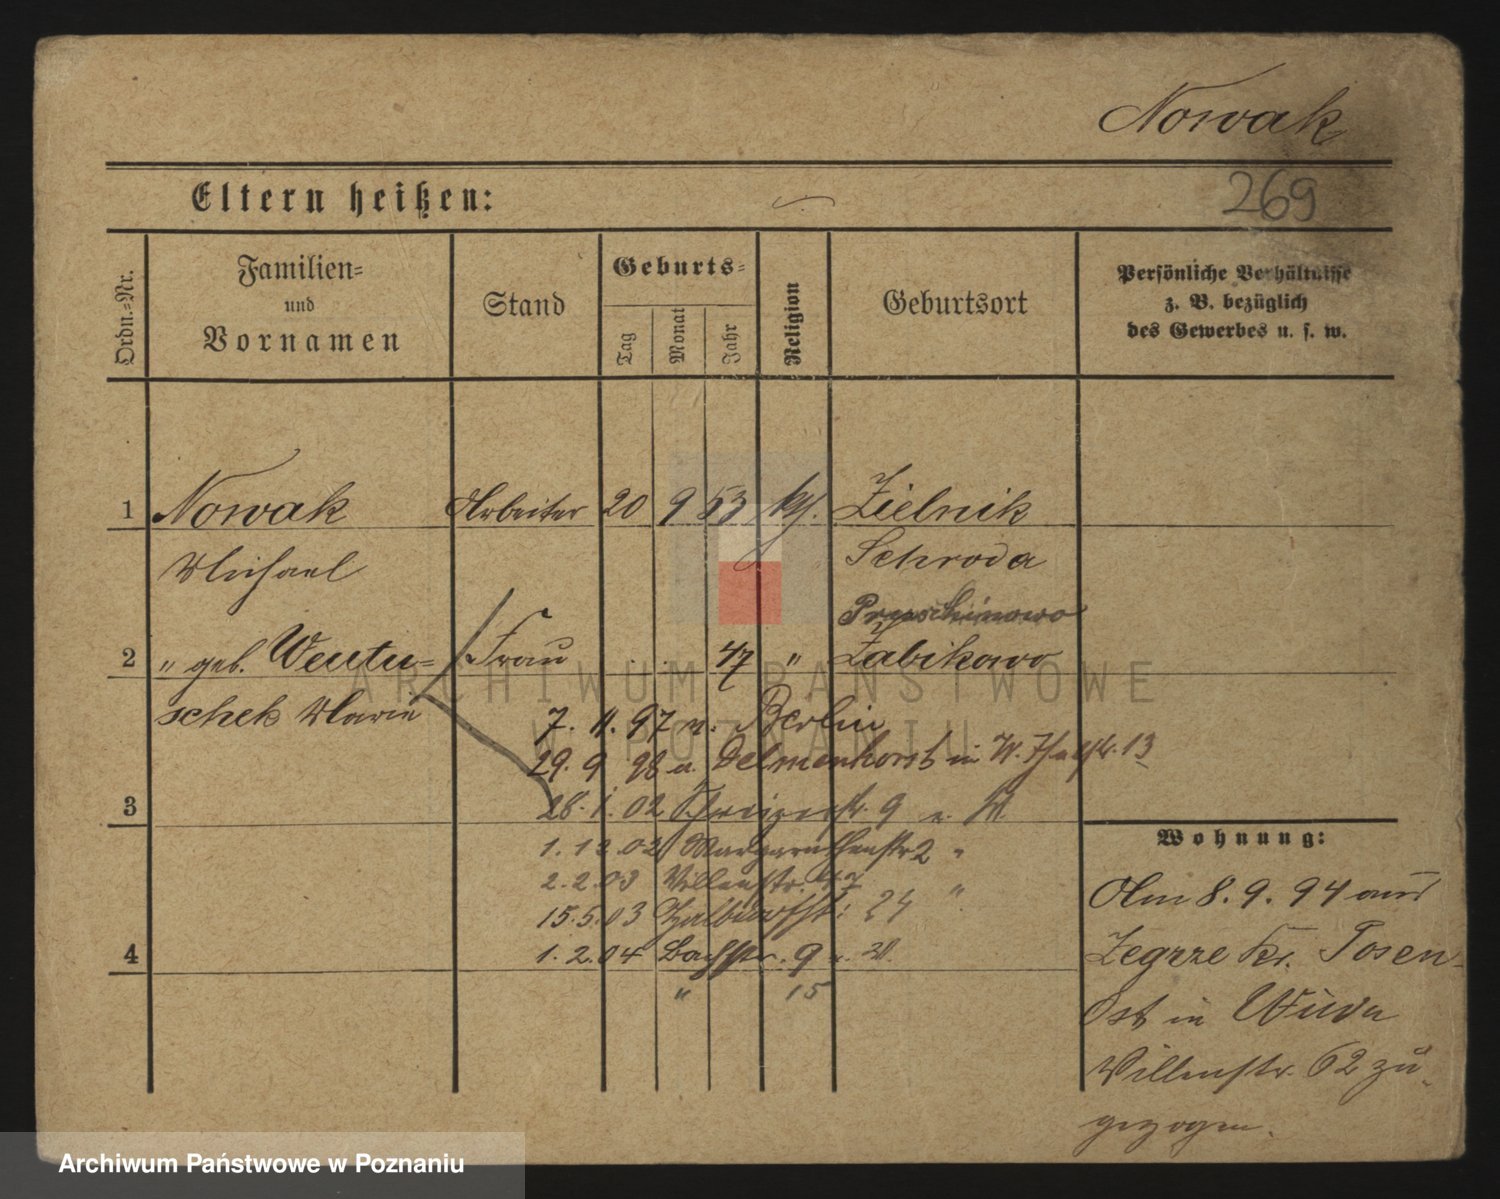 Nowak
Eltern heißen:
269
Ordn.=Nr.
Familien=
und
Vornamen
Stand
Geburts=
Tag
Monat
Jahr
Religion
Geburtsort
Persönliche Verhältnisse
z. B. bezüglich
des Gewerbes u. s. w.
1 Nowak Arbeiter 20 9 53 kth. Zielnik
Michael Schroda
2 " geb. Wentu= Frau 47 " Żabikowo
schek Marie
7. 11. 97 n. Berlin
29. 9 98 a. Delmenhorst in W. 13
3
28. 1. 02 9 n. W.
1. 12. 02 Margarethenstr 2 "
2. 2. 03 Villenstr. 47 "
15. 5. 03 24
4
1. 2. 04 Bachstr. 9 n. W.
" 15
Wohnung:
Am 8. 9. 94 aus
Zegrze Kr. Posen-
Ost in Wilda
Villenstr. 62 zu-
gezogen.
ARCHIWUM PAŃSTWOWE
W POZNANIU
Archiwum Państwowe w Poznaniu